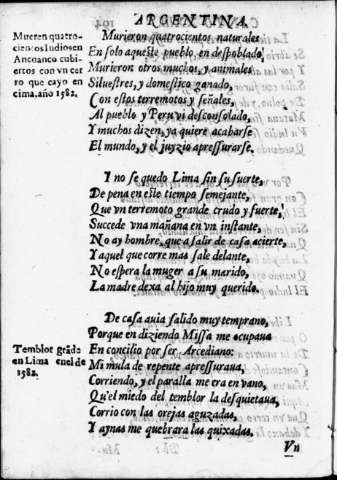 ARGENTINA.
Mueren quatro-
cientos Indios en
Ancoanco cubi-
ertos con vn cer
ro que cayo en
cima, año 1582.
Murieron quatrocientos naturales
En solo aqueste pueblo, en despoblado,
Murieron otros muchos, y animales
Siluestres, y domestico ganado,
Con estos terremotos y señales,
Al pueblo y Peru vi desconsolado,
Y muchos dizen, ya quiere acabarse
El mundo, y el juyzio apressurarse.
Y no se quedo Lima sin su suerte,
De pena en este tiempo semejante,
Que vn terremoto grande crudo y fuerte,
Succede vna mañana en vn instante,
No ay hombre, que a salir de casa acierte,
Y aquel que corre mas sale delante,
No espera la muger a su marido,
La madre dexa al hijo muy querido.
De casa auia salido muy temprano,
Porque en diziendo Missa me ocupaua
En concilio por ser Arcediano:
Temblor grãde
en Lima en el de
1582.
Mi mula de repente apressuraua,
Corriendo, y el paralla me era en vano,
Qu'el miedo del temblor la desquietaua,
Corrio con las orejas aguzadas,
Y aynas me quebrara las quixadas.
Vn